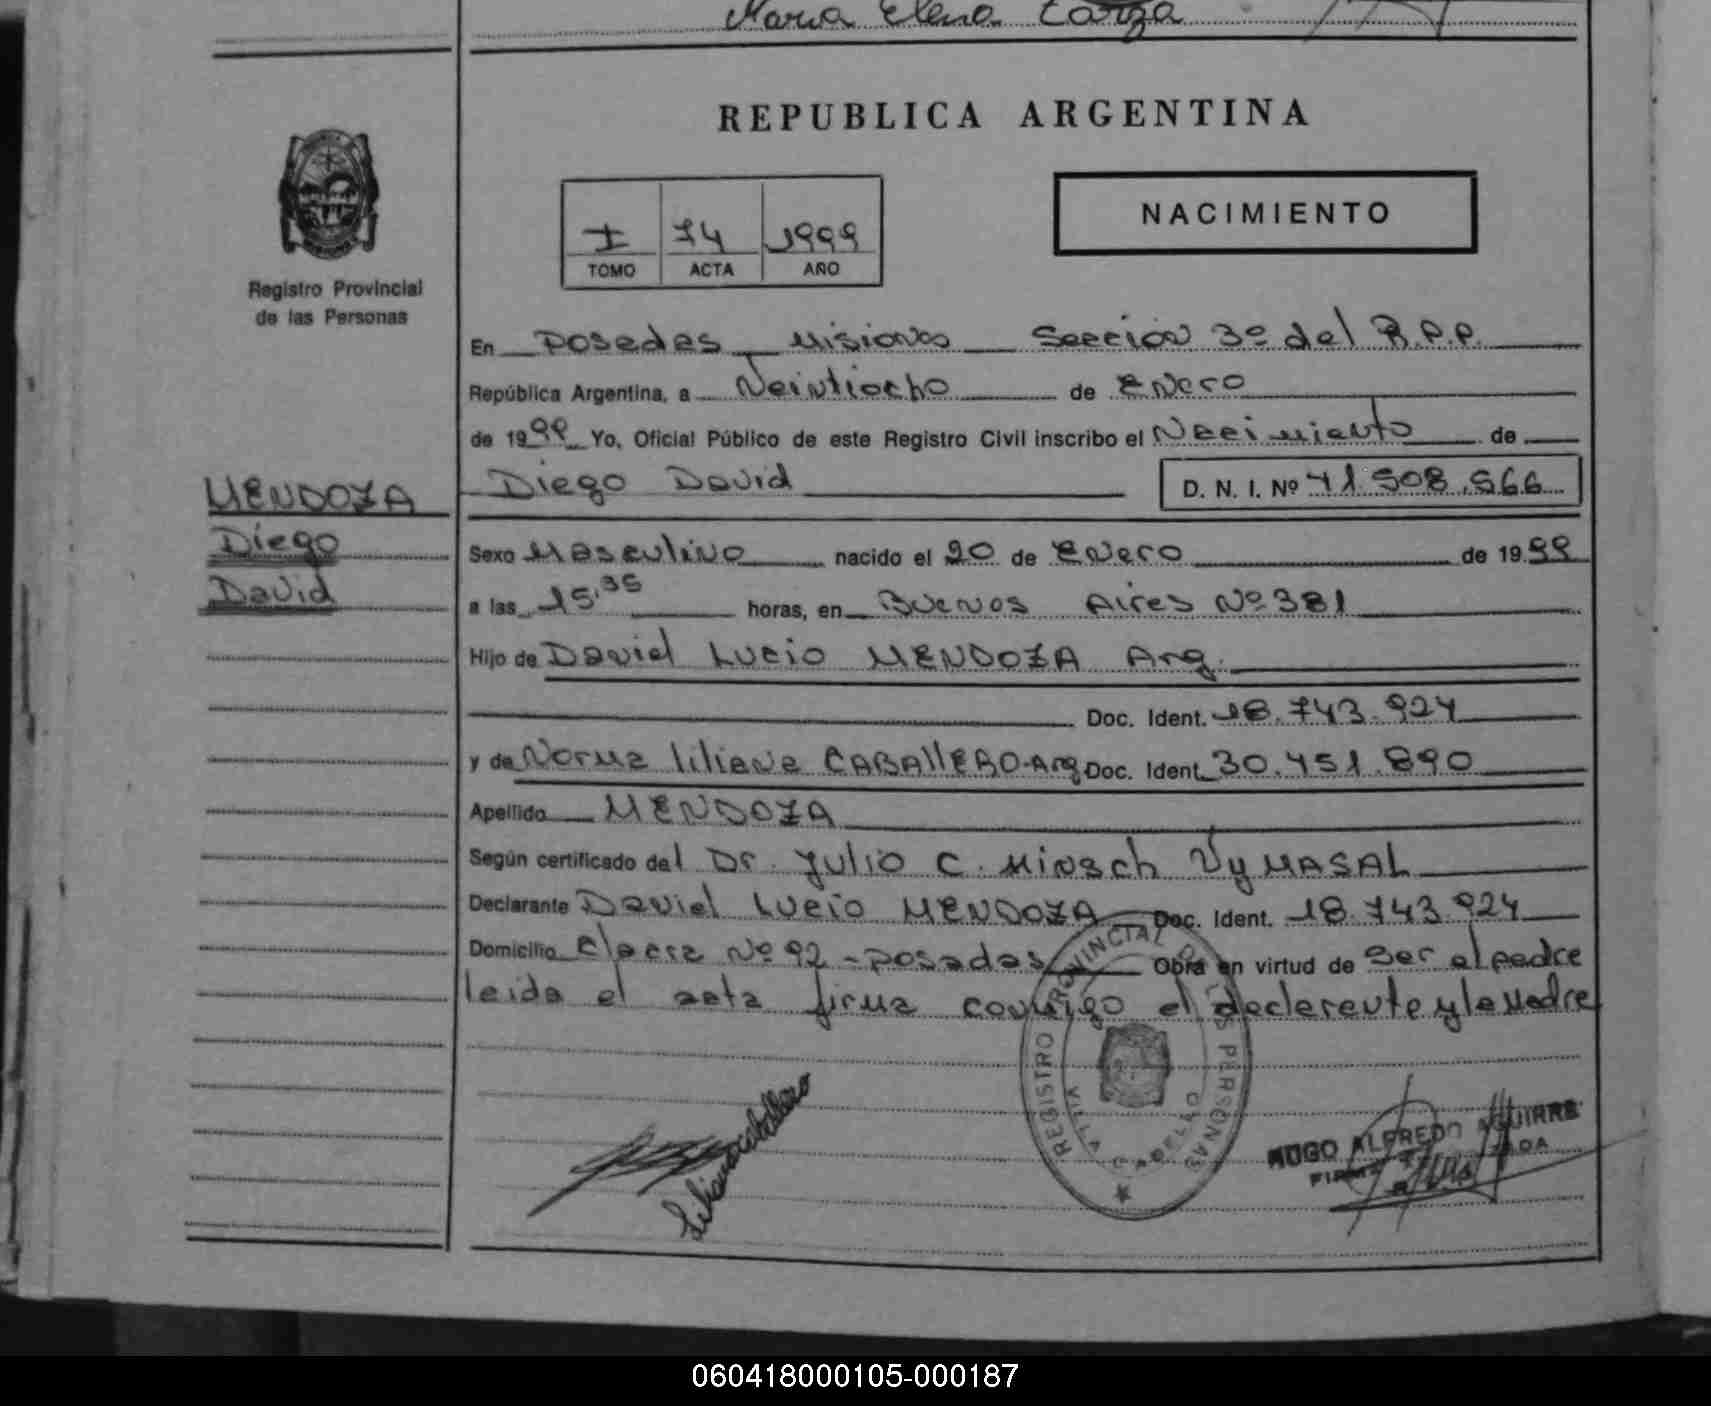 Maria Elena
REPUBLICA ARGENTINA
NACIMIENTO
I 74 1999
TOMO ACTA AÑO
Registro Provincial
de las Personas
En Posadas Misiones Sección 3º del R.P.P.
República Argentina, a Veintiocho de Enero
de 1999 Yo, Oficial Público de este Registro Civil inscribo el Nacimiento de
MENDOZA
Diego
David
Diego David D. N. I. Nº 41.508.566
Sexo Masculino nacido el 20 de Enero de 1999
a las 15,35 horas, en Buenos Aires Nº 381
Hijo de David Lucio MENDOZA Arg.
Doc. Ident. 18.743.924
y de Norma liliana CABAllERO-Arg Doc. Ident. 30.451.890
Apellido MENDOZA
Según certificado del Dr. Julio C. Minsch VyMASAL
Declarante David Lucio MENDOZA Doc. Ident. 18.743.924
Domicilio Chacra Nº 92 - Posadas Obra en virtud de Ser el padre
leida el acta firma conmigo el declarante y la Madre
REGISTRO PROVINCIAL DE LAS PERSONAS
VILLA CABELLO
Liliana caballero
HUGO ALFREDO AGUIRRE
060418000105-000187